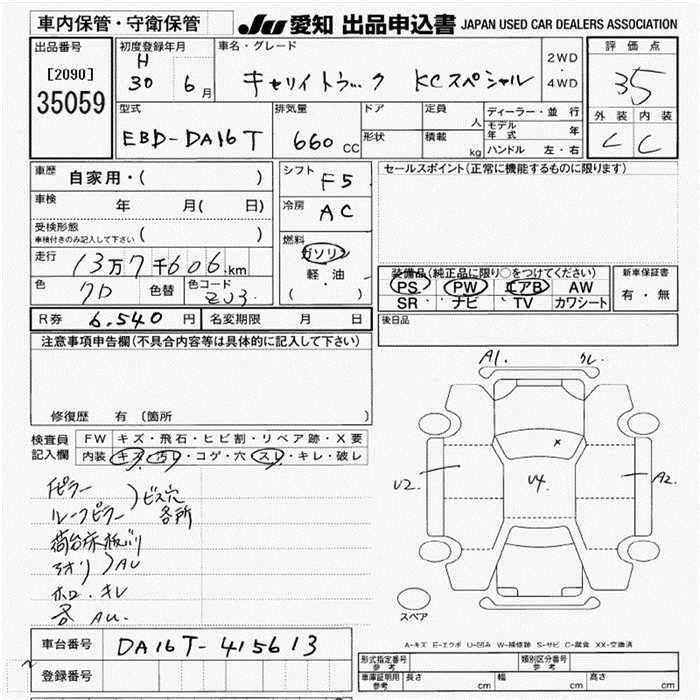 車内保管・守衛保管
JU 愛知 出品申込書 JAPAN USED CAR DEALERS ASSOCIATION
出品番号
[2090]
35059
初度登録年月
H
30 6月
車名・グレード
キャリイトラック KCスペシャル
2WD
・
4WD
評価点
35
外装 内装
C C
型式
EBD-DA16T
排気量
660 CC
ドア
形状
定員
人
積載
kg
ディーラー・並行
モデル年式 年
ハンドル 左・右
車歴 自家用・( )
車検 年 月( 日)
受検形態
車検付きのみ記入して下さい ( )
走行 13万7千606km
色 色替 色コード
ZJ3
シフト F5
冷房 AC
燃料
ガソリン
軽油
( )
セールスポイント(正常に機能するものに限ります)
装備品(純正品に限り○をつけてください)
PS PW エアB AW
SR ナビ TV カワシート
新車保証書
有・無
R券 6,540 円 名変期限 月 日
後日品
注意事項申告欄(不具合内容等は具体的に記入して下さい)
修復歴 有 〔箇所
検査員
記入欄
FW キズ・飛石・ヒビ割・リペア跡・X要
内装 キズ・汚レ・コゲ・穴・スレ・キレ・破レ
Fピラー
ルーフピラー
ビス穴
各所
荷台床板バリ
アオリ AU
ホロ・キレ
各 AU.
A1.
U2
U4
A2
x
スペア
A-キズ E-エクボ U-凹み W-補修跡 S-サビ C-腐食 XX-交換済
車台番号 DA16T-415613
登録番号
形式指定番号
参考
類別区分番号
参考
車庫証明用
参考
長さ cm 幅 cm 高さ cm